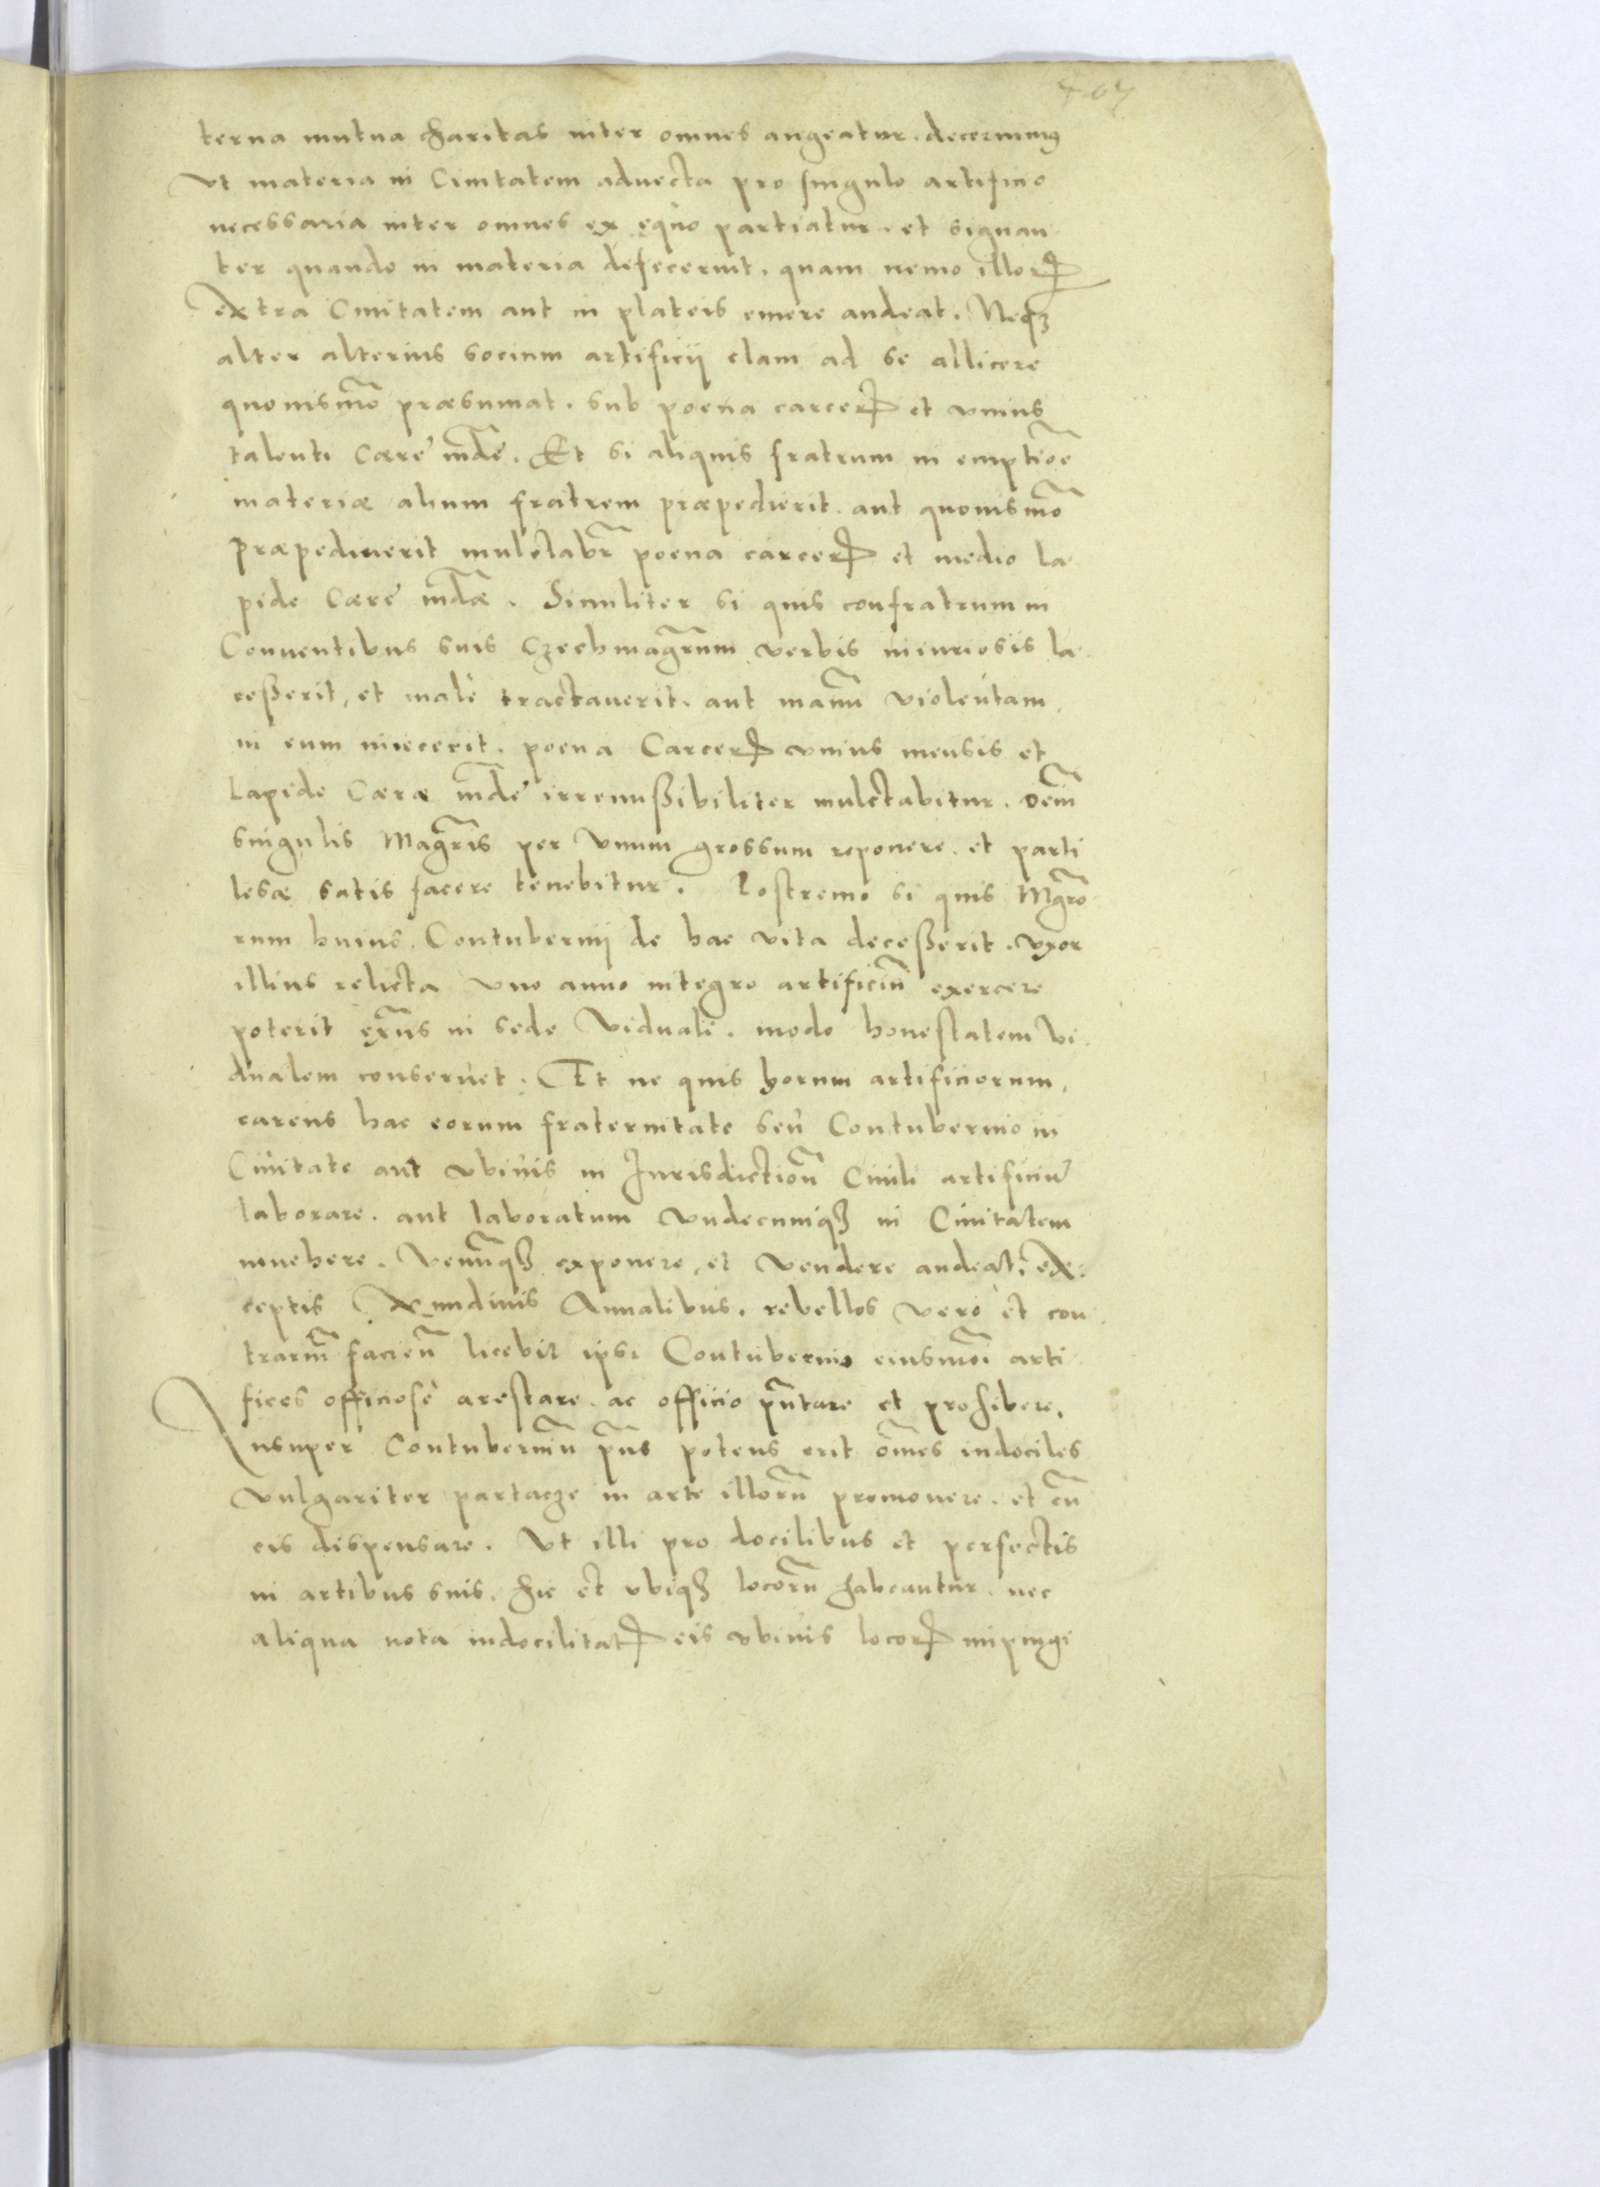 terna mutua charitas inter omnes augeatur. decernimus
Vt materia in Ciuitatem aduecta pro singulo artificio
necessaria inter omnes ex equo partiatur. et signan
ter quando in materia defecerint. quam nemo illorum
extra Ciuitatem aut in plateis emere audeat. Neq3
alter alterius socium artificij clam ad se allicere
quouismodo præsumat. sub poena carceris et vnius
talenti Cære mdæ. Et si aliquis fratrum in emptione
materiæ alium fratrem præpedierit. aut quouismodo
præpediuerit mulctabitur poena carceris et medio la
pide Cære mdæ. Similiter si quis confratrum in
Conuentibus suis Czechmagrum verbis iniuriosis la
ceßerit, et malè tractauerit. aut manum violentam
in eum iniecerit. poena Carceris vnius mensis et
Lapide Cæræ mdæ irremißibiliter mulctabitur.
singulis Magris per Vnum grossum reponere. et parti
lesæ satis facere tenebitur. Postremo si quis Mgro
rum huius Contubernij de hac vita deceßerit. vxor
illius relicta vno anno integro artificiũ exercere
poterit exñs in sede Viduali. modo honestatem Vi
dualem conseruet. Et ne quis horum artificiorum,
carens hac eorum fraternitate seu Contubernio in
Ciuitate aut vbiuis in Jurisdictioñ Ciuili artificiũ
laborare. aut laboratum vndecumq3 in Ciuitatem
inuehere. Venumq3 exponere, et vendere audeat, ex
ceptis nundinis Annalibus. rebellos vero et con
trariũ facieñ licebit ipsi Contubernio eiusmõi arti
fices officiosè arestare. ac officio pñtare et prohibere.
Insuper Contuberniũ pñs potens erit om̃es indociles
vulgariter partacze in arte illorũ promouere. et cũ
eis dispensare. Vt illi pro docilibus et perfectis
in artibus suis. hic et vbiq3 locorũ habeantur. nec
aliqua nota indocilitatis eis vbiuis locorum impingi